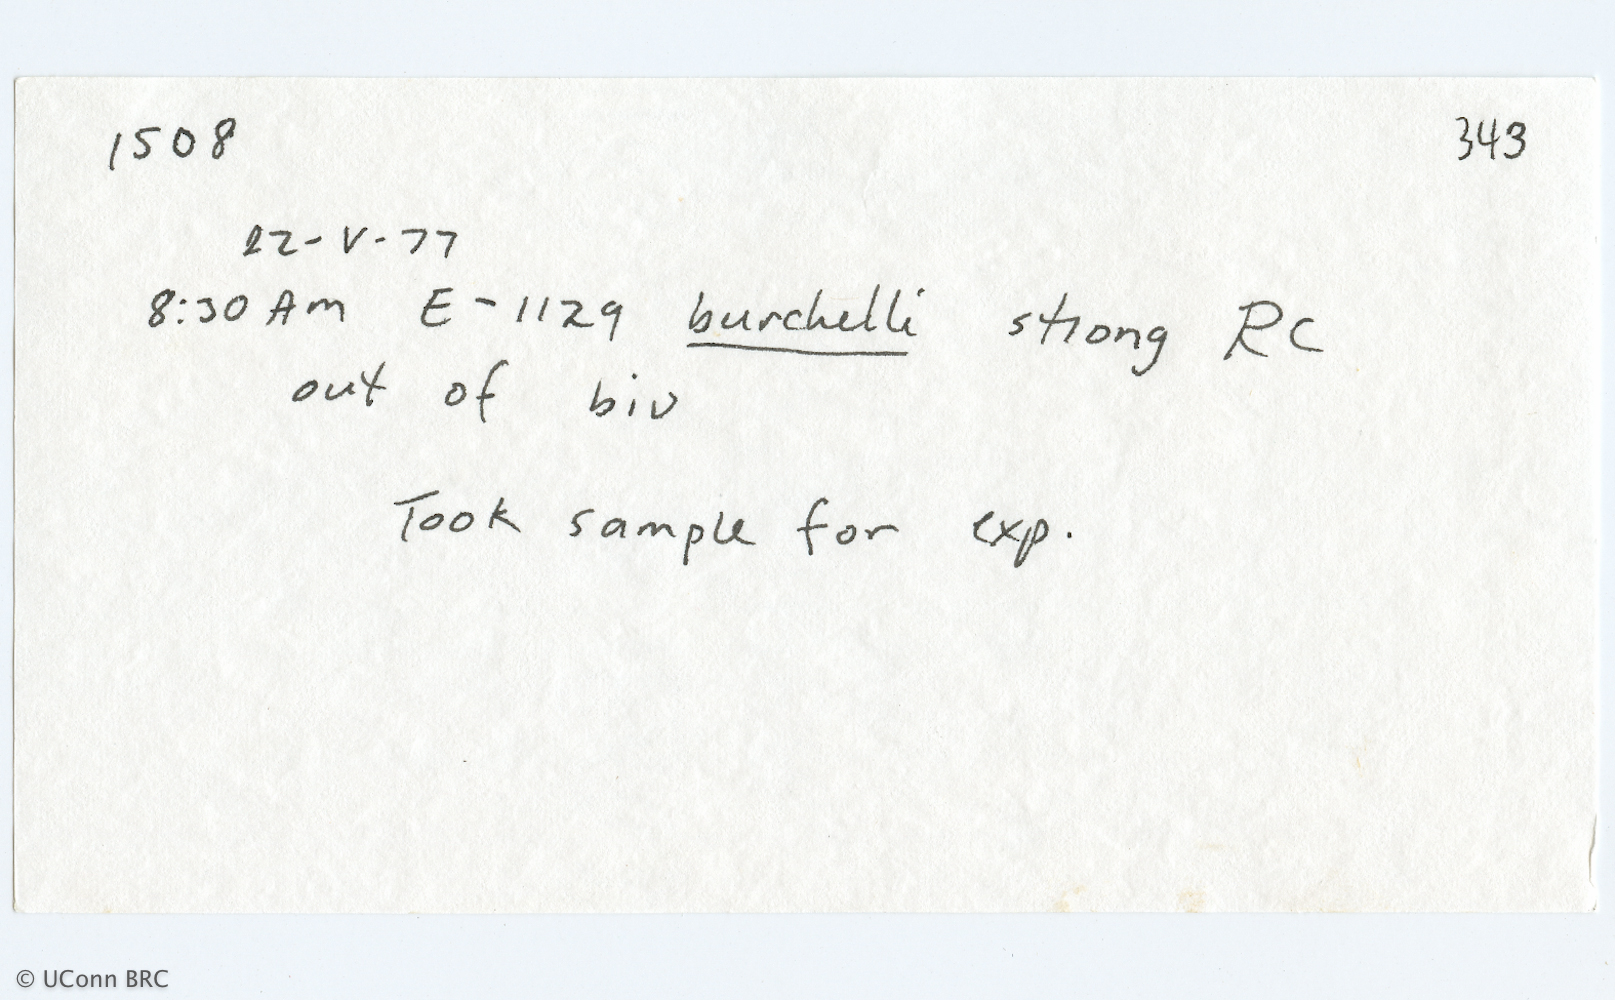 1508
343
22-V-77
8:30 Am E-1129 burchelli strong RC
out of biv
Took sample for exp.
© UConn BRC